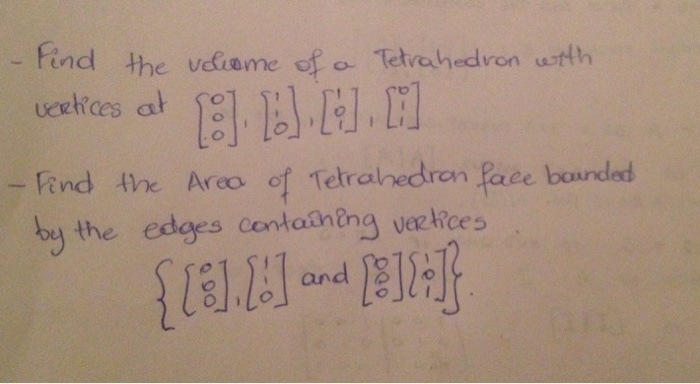 - Find the volume of a Tetrahedron with
vertices at [0 0 0], [1 1 0], [1 0 1], [0 1 1]
- Find the Area of Tetrahedron face bounded
by the edges containing vertices
{[0 0 0], [1 1 0] and [0 0 0] [1 0 1]}.